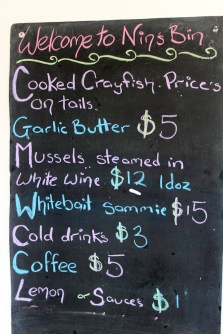 Welcome to Nin's Bin
Cooked Crayfish. Price's
on tails.
Garlic Butter $5
Mussels steamed in
White Wine $12 1doz
Whitebait Sammie $15
Cold drinks $3
Coffee $5
Lemon or Sauces $1